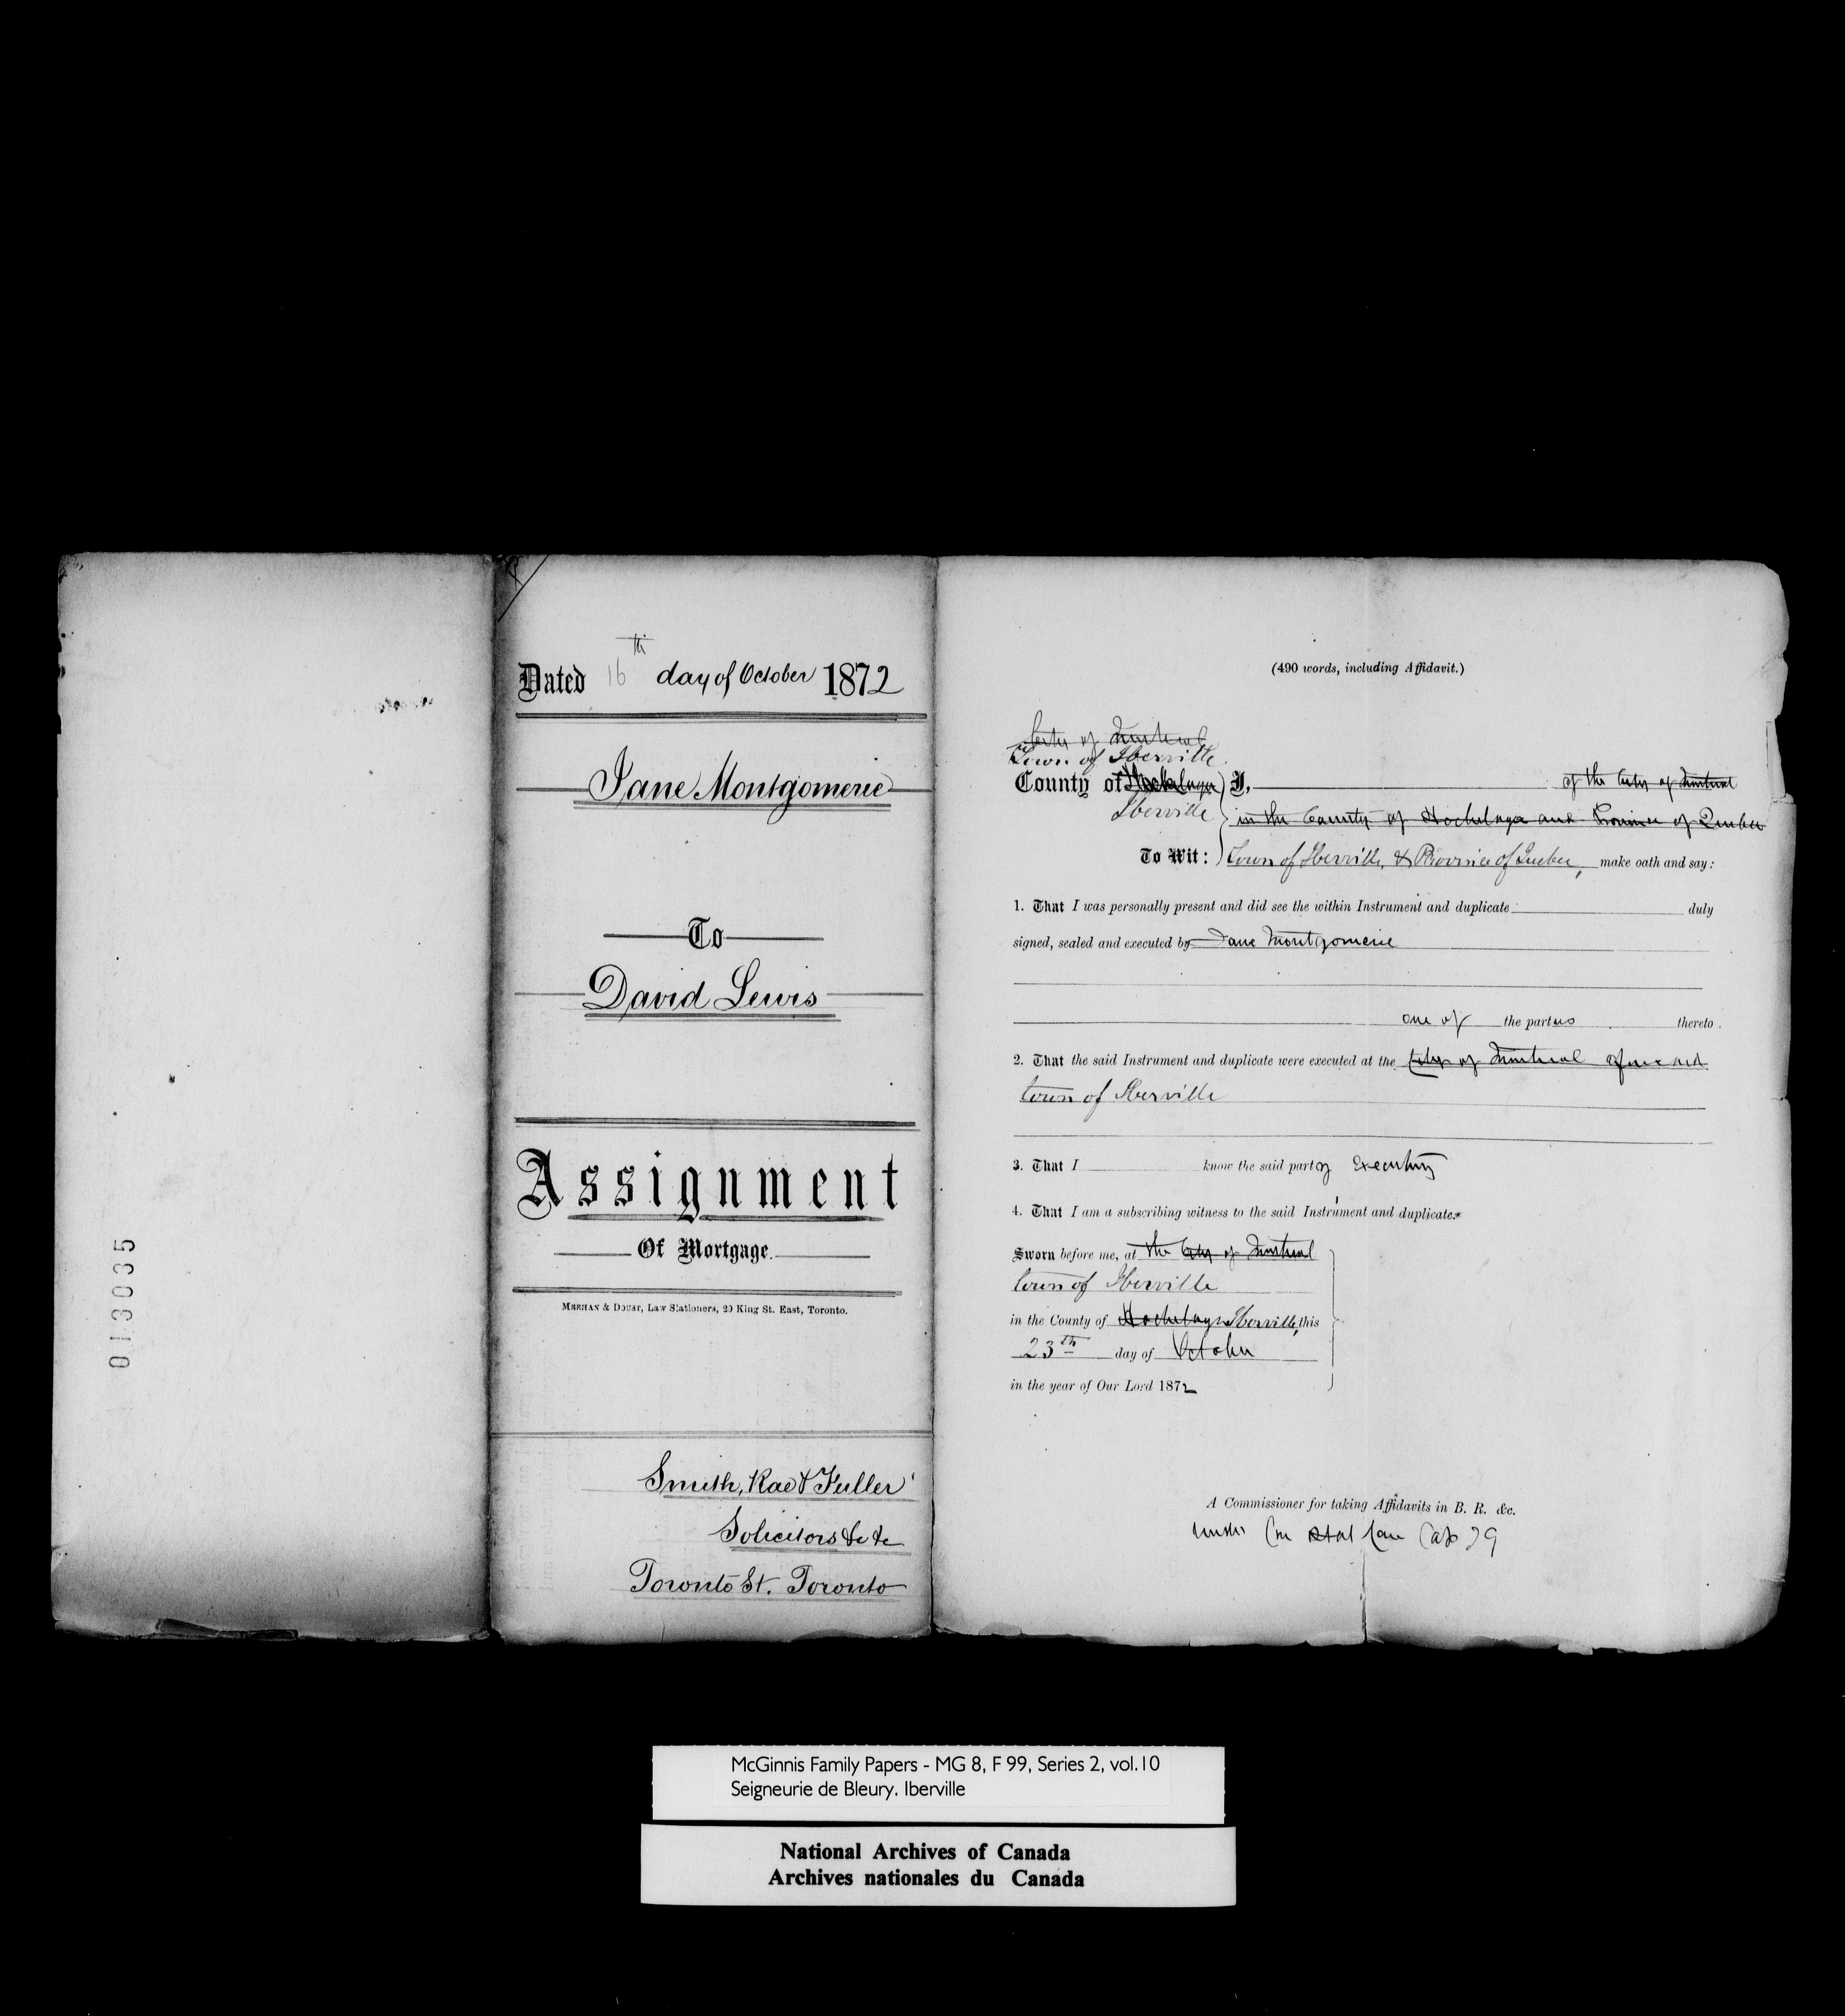 013035
Dated 16th day of October 1872
Jane Montgomerie
To
David Lewis
Assignment
Of Mortgage.
MEEHAN & DOUST, Law Stationers, 29 King St. East, Toronto.
Smith, Rae & Fuller
Solicitors &c &c
Toronto St. Toronto
(490 words, including Affidavit.)
City of Montreal
Town of Iberville.
County of Hochelaga I, of the City of Montreal
Iberville in the County of Hochelaga and Province of Quebec
To Wit: Town of Iberville, & Province of Quebec, make oath and say:
1. That I was personally present and did see the within Instrument and duplicate duly
signed, sealed and executed by Jane Montgomerie
one of the parties thereto.
2. That the said Instrument and duplicate were executed at the City of Montreal aforesaid
town of Iberville
3. That I know the said party executing
4. That I am a subscribing witness to the said Instrument and duplicate.
Sworn before me, at the City of Montreal
town of Iberville
in the County of Hochelaga Iberville, this
23th day of October
in the year of Our Lord 1872
A Commissioner for taking Affidavits in B. R. &c.
under Cap 79
McGinnis Family Papers - MG 8, F 99, Series 2, vol.10
Seigneurie de Bleury. Iberville
National Archives of Canada
Archives nationales du Canada